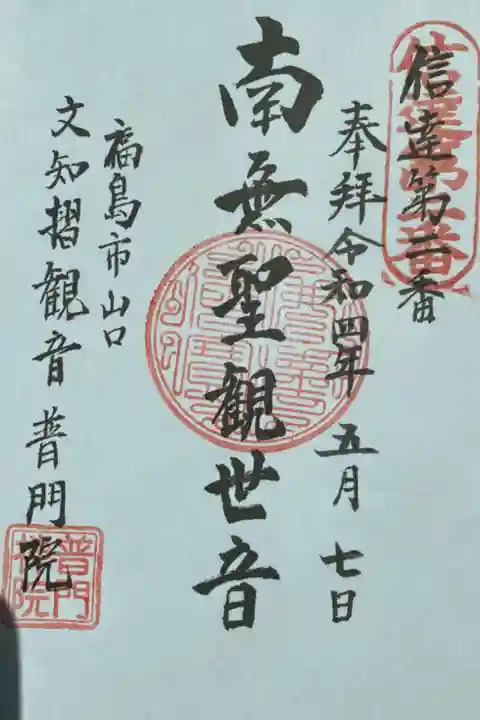 信達第二番
奉拜令和四年五月七日
南無聖観世音
福島市山口
文知摺観音普門院
信達第二番
普門院